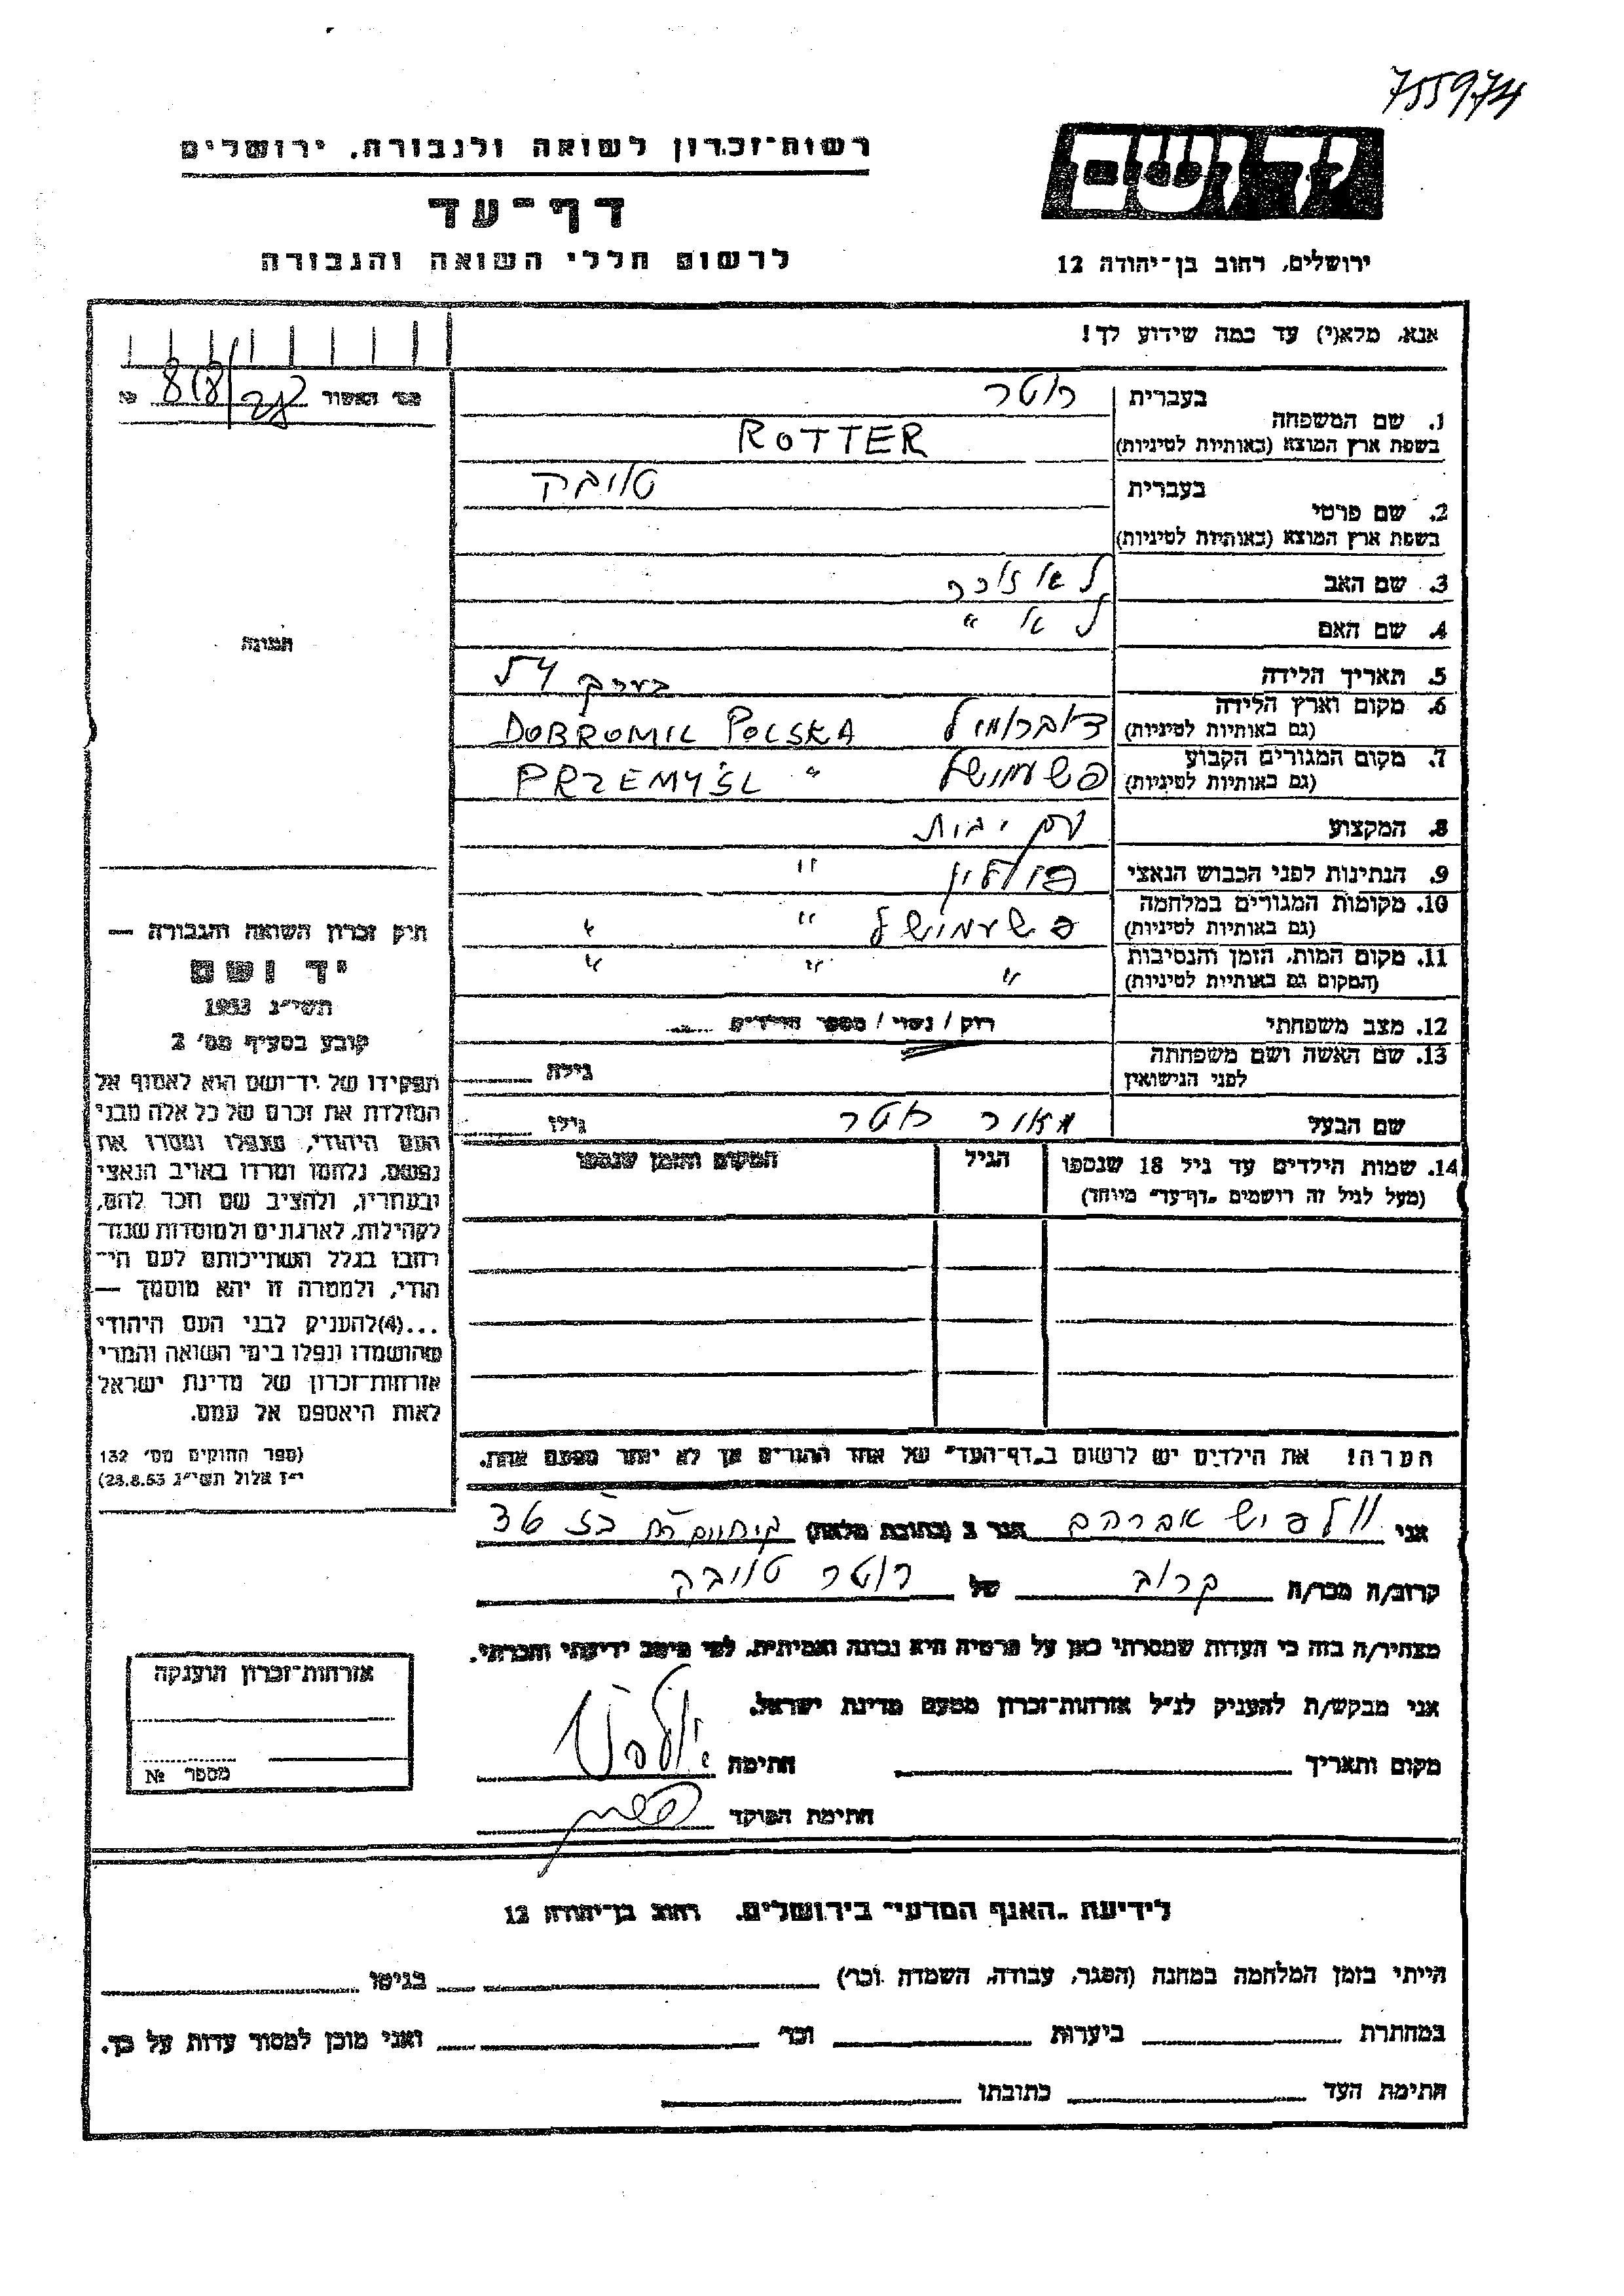 755974
רשות־זכרון לשואה ולגבורה. ירושלים
דף־עד
לרשום חללי השואה והגבורה
יד ושם
ירושלים, רחוב בן־יהודה 12
אנא, מלא(י) עד כמה שידוע לך!
מס׳ האשור № 818
בעברית רוטר
1. שם המשפחה
בשפת ארץ המוצא (באותיות לטיניות) ROTTER
בעברית טויבה
2. שם פרטי
בשפת ארץ המוצא (באותיות לטיניות)
3. שם האב לא זוכר
4. שם האם לא "
5. תאריך הלידה בערך 54
6. מקום וארץ הלידה דוברומיל DOBROMIL POLSKA
(גם באותיות לטיניות)
7. מקום המגורים הקבוע פשעמישל " PRZEMYŚL
(גם באותיות לטיניות)
8. המקצוע עק׳ בית
9. הנתינות לפני הכבוש הנאצי פולין "
10. מקומות המגורים במלחמה פשעמישל " "
(גם באותיות לטיניות)
11. מקום המות, הזמן והנסיבות " " "
(המקום גם באותיות לטיניות)
12. מצב משפחתי רוק / נשוי / מספר הילדים
13. שם האשה ושם משפחתה גילה
לפני הנישואין
שם הבעל מאיר רוטר גילו
14. שמות הילדים עד גיל 18 שנספו הגיל המקום והזמן שנספו
(מעל לגיל זה רושמים „דף־עד״ מיוחד)
הערה! את הילדים יש לרשום ב„דף־העד״ של אחד ההורים אך לא יותר מפעם אחת.
תמונה
חוק זכרון השואה והגבורה —
יד ושם
תשי״ג 1953
קובע בסעיף מס׳ 2
תפקידו של יד־ושם הוא לאסוף אל
המולדת את זכרם של כל אלה מבני
העם היהודי, שנפלו ומסרו את
נפשם, נלחמו ומרדו באויב הנאצי
ובעוזריו, ולהציב שם וזכר להם,
לקהילות, לארגונים ולמוסדות שנח־
רבו בגלל השתייכותם לעם הי־
הודי, ולמטרה זו יהא מוסמך —
...(4)להעניק לבני העם היהודי
שהושמדו ונפלו בימי השואה והמרי
אזרחות־זכרון של מדינת ישראל
לאות היאספם אל עמם.
(ספר החוקים מס׳ 132
י״ז אלול תשי״ג 28.8.53)
אני וולפיש אברהם הגר ב (כתובת מלאה) 36
קרוב/ה מכר/ה קרוב של רוטר טויבה
מצהיר/ה בזה כי העדות שמסרתי כאן על פרטיה היא נכונה ואמיתית, לפי מיטב ידיעתי והכרתי.
אני מבקש/ת להעניק לנ״ל אזרחות־זכרון מטעם מדינת ישראל.
מקום ותאריך חתימה
חתימת הפוקד
אזרחות־זכרון הוענקה
מספר №
לידיעת „האגף המדעי״ בירושלים. רחוב בן־יהודה 12
הייתי בזמן המלחמה במחנה (הסגר, עבודה, השמדה וכו׳) בגיטו
במחתרת ביערות וכו׳ ואני מוכן למסור עדות על כך.
חתימת העד כתובתו